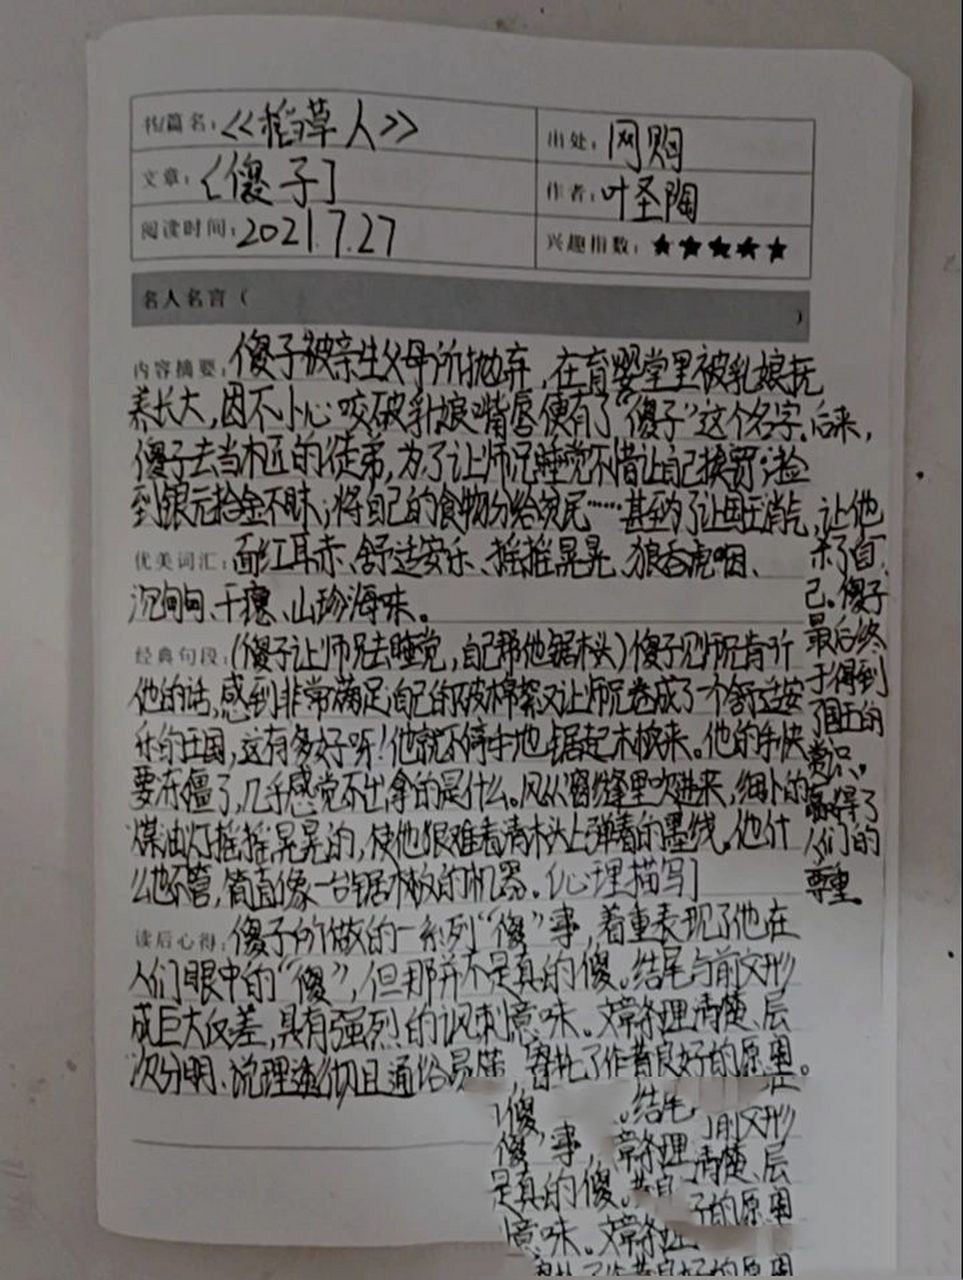 书/篇名：《稻草人》
出处：网购
文章：〔傻子〕
作者：叶圣陶
阅读时间：2021.7.27
兴趣指数：★★★★★
名人名言（ ）
内容摘要：傻子被亲生父母所抛弃，在育婴堂里被乳娘抚
养长大，因不小心咬破乳娘嘴唇便有了“傻子”这个名字。后来，
傻子去当木匠的徒弟，为了让师兄睡觉不惜让自己挨罚；捡
到银元拾金不昧；将自己的食物分给贫民……甚至为了让国王消气，让他
杀了自
己。傻子
最后终
于得到
了国王的
赏识。
赢得了
人们的
尊重
优美词汇：面红耳赤、舒适安乐、摇摇晃晃、狼吞虎咽、
沉甸甸、干瘪、山珍海味。
经典句段：（傻子让师兄去睡觉，自己帮他锯木头）傻子见师兄肯听
他的话，感到非常满足，自己的破棉絮又让师兄卷成了一个舒适安
乐的王国，这有多好呀！他就不停手地锯起木板来。他的手快
要冻僵了，几乎感觉不出拿的是什么。风从窗缝里吹进来，细小的
煤油灯摇摇晃晃的，使他很难看清木头上弹着的墨线。他什
么也不管，简直像一台锯木板的机器。〔心理描写〕
读后心得：傻子所做的一系列“傻”事，着重表现了他在
人们眼中的“傻”，但那并不是真的傻。结尾与前文形
成巨大反差，具有强烈的讽刺意味。文章条理清楚、层
次分明、说理透彻且通俗易懂，寄托了作者良好的愿望。
傻 。结尾 前文形
傻”事， 章条理清楚、层
是真的傻。 的愿望
意味。文章条理